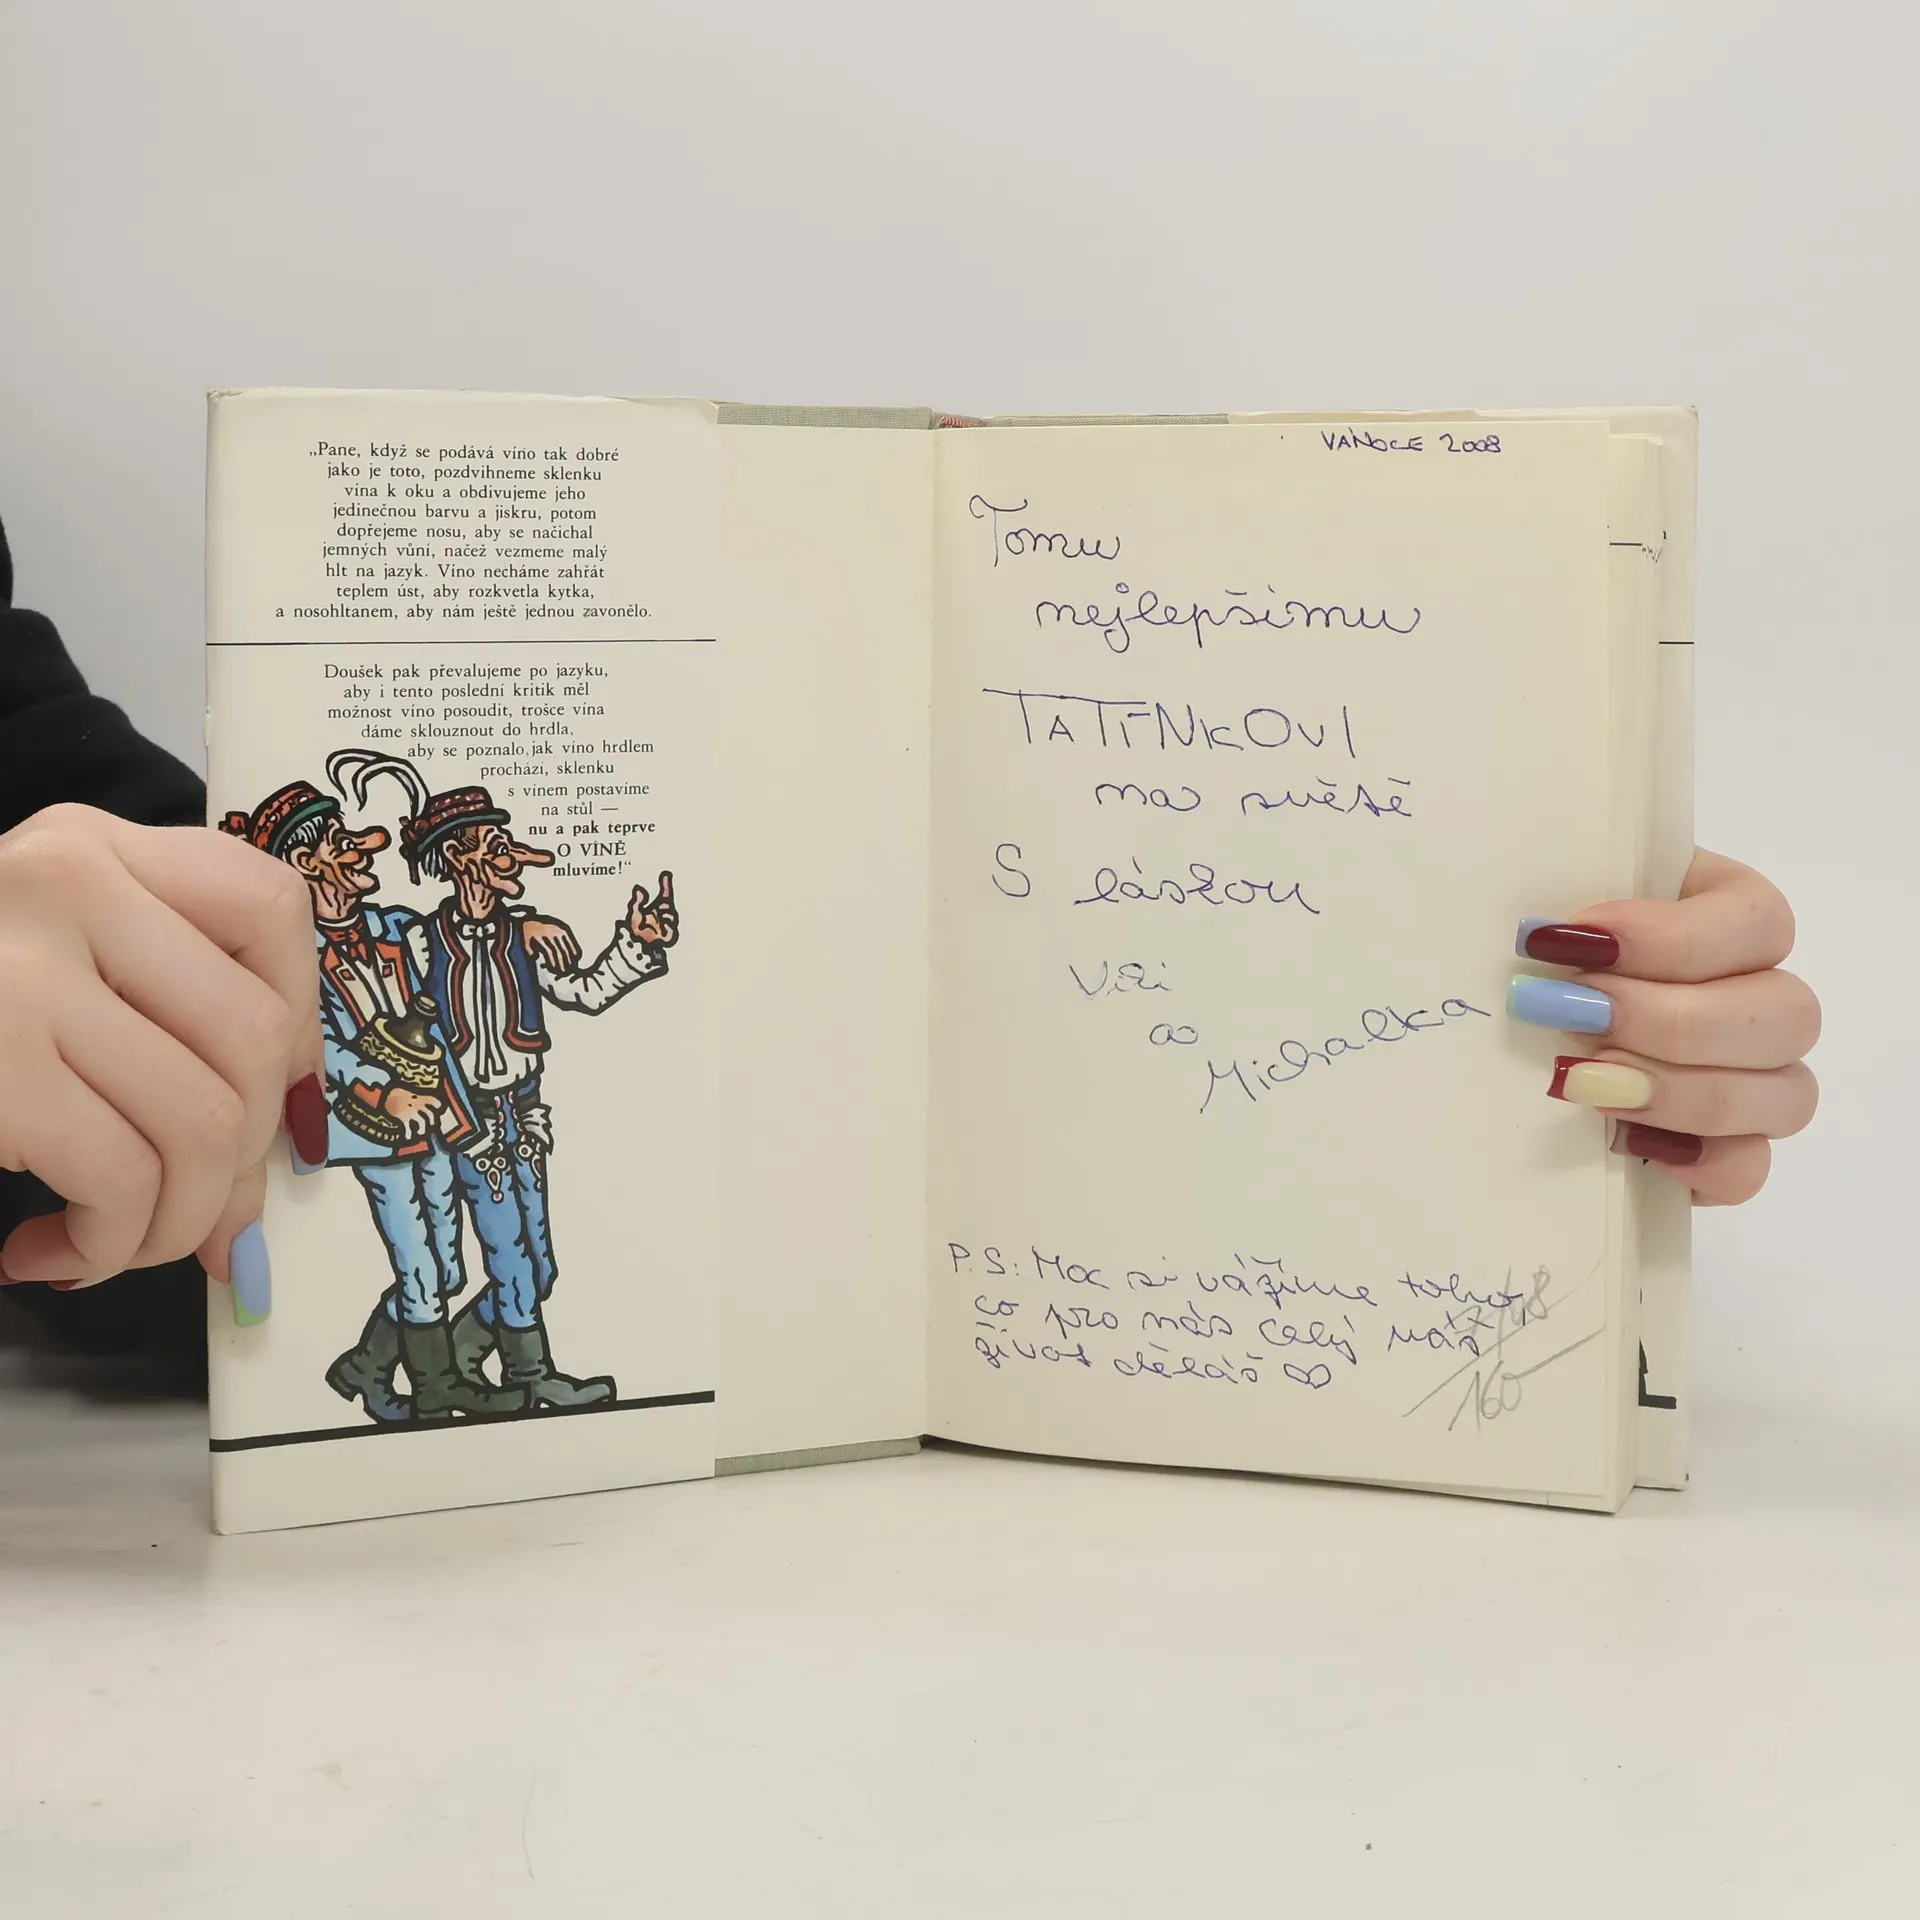 „Pane, když se podává víno tak dobré
jako je toto, pozdvihneme sklenku
vína k oku a obdivujeme jeho
jedinečnou barvu a jiskru, potom
dopřejeme nosu, aby se načichal
jemných vůní, načež vezmeme malý
hlt na jazyk. Víno necháme zahřát
teplem úst, aby rozkvetla kytka,
a nosohltanem, aby nám ještě jednou zavonělo.
Doušek pak převalujeme po jazyku,
aby i tento poslední kritik měl
možnost víno posoudit, trošce vína
dáme sklouznout do hrdla,
aby se poznalo, jak víno hrdlem
prochází, sklenku
s vínem postavíme
na stůl —
nu a pak teprve
O VÍNĚ
mluvíme!“
VÁNOCE 2008
Tomu
nejlepšímu
TATÍNKOVI
na světě
S láskou
a
Michalka
P.S.: Moc si vážíme toho,
co pro nás celý náš
život děláš ♡
160